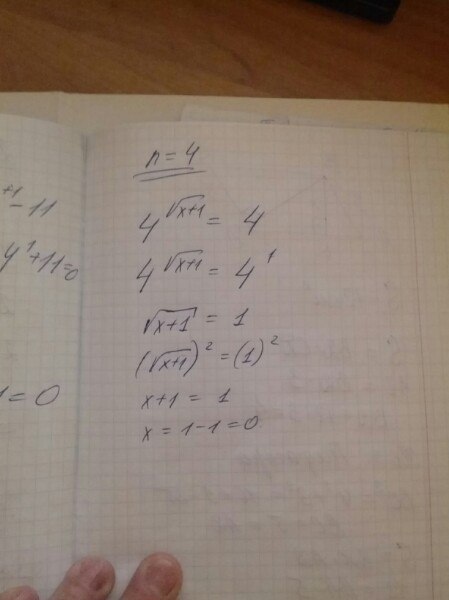 +1 - 11
4¹ + 11 = 0
1 = 0
n = 4
4^√(x+1) = 4
4^√(x+1) = 4¹
√(x+1) = 1
(√(x+1))² = (1)²
x+1 = 1
x = 1-1 = 0